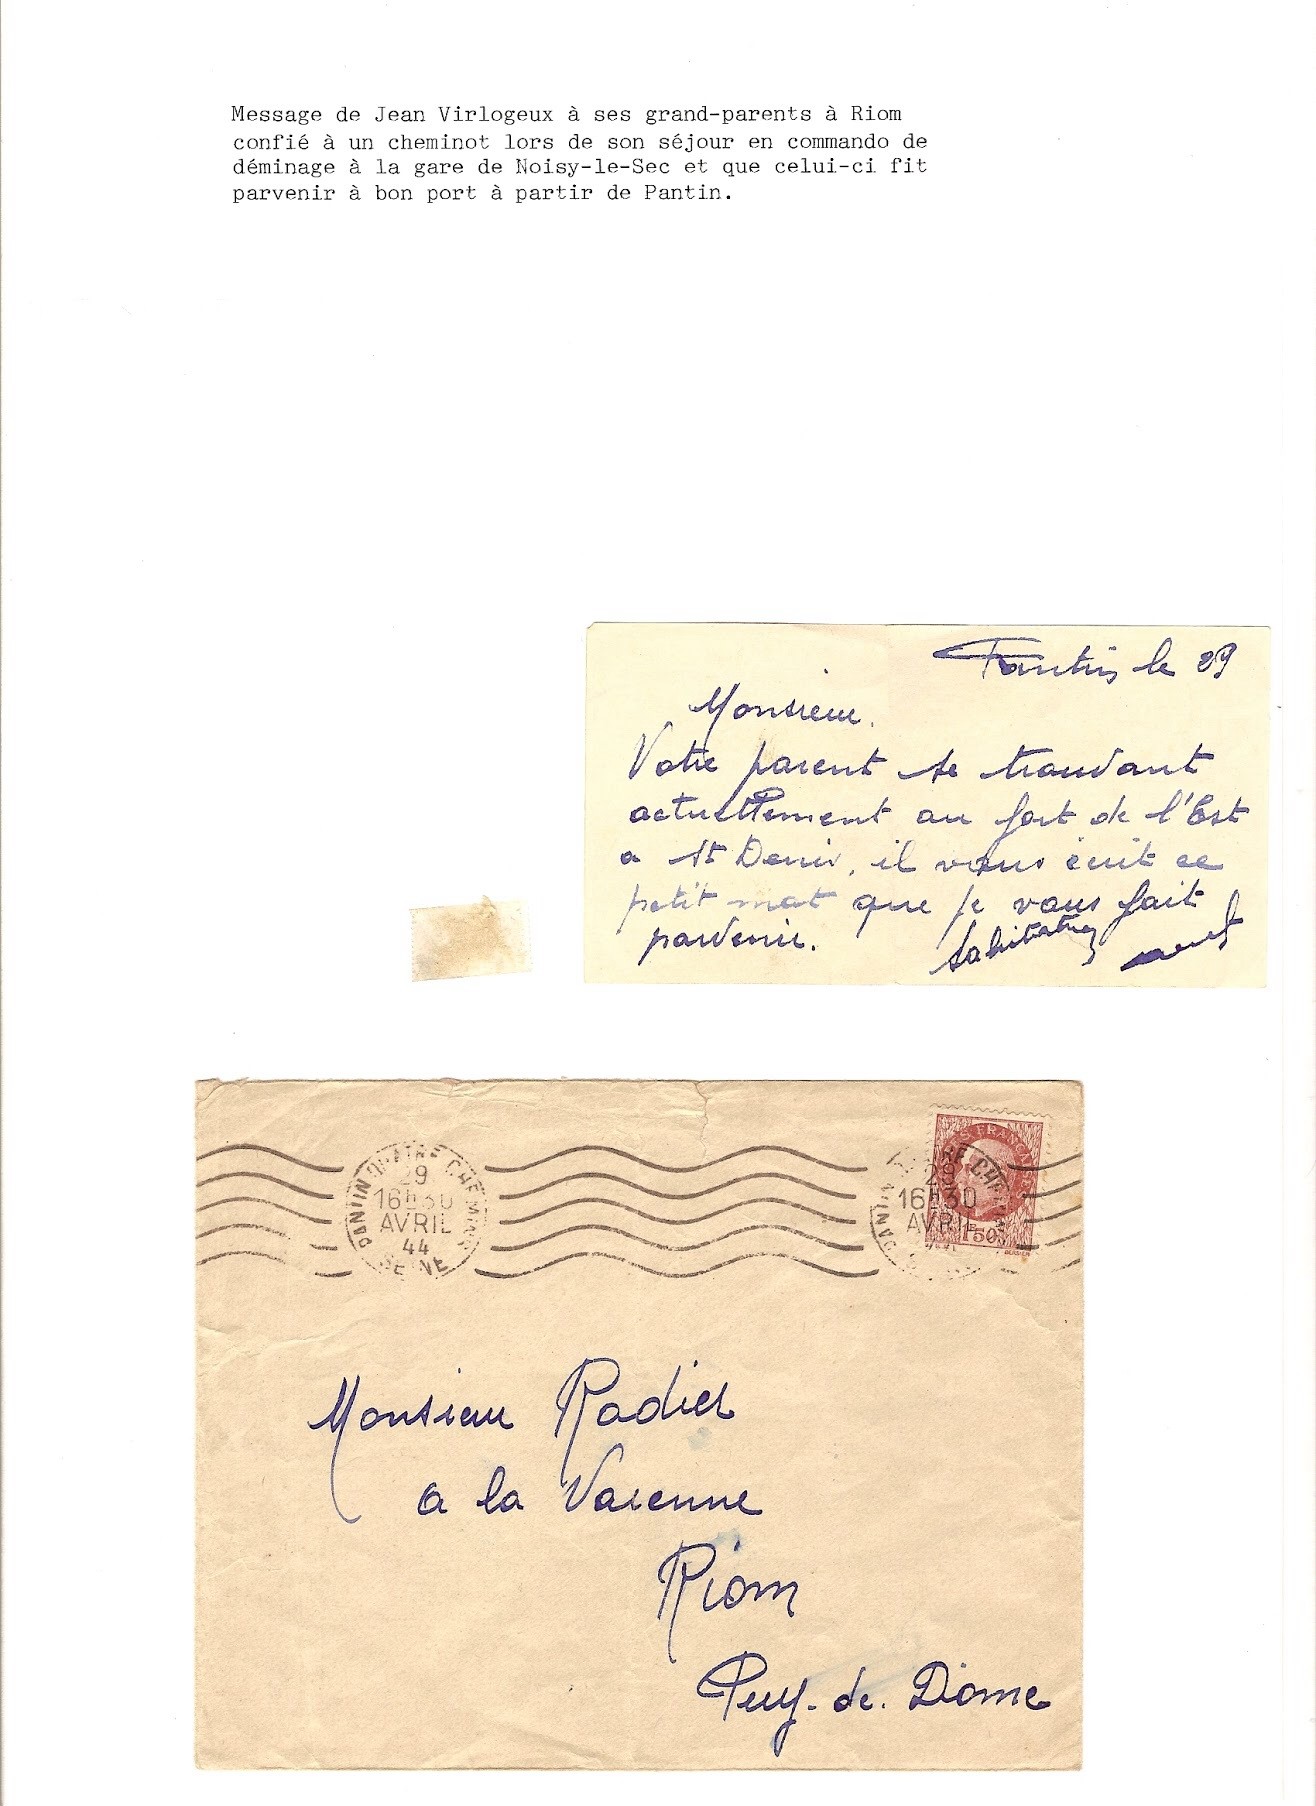 Message de Jean Virlogeux à ses grand-parents à Riom
confié à un cheminot lors de son séjour en commando de
déminage à la gare de Noisy-le-Sec et que celui-ci fit
parvenir à bon port à partir de Pantin.
Pantin le 29
Monsieur.
Votre parent se trouvant
actuellement au fort de l'Est
a St Denis, il vous écrit ce
petit mot que je vous fait
parvenir.
Salutations
PANTIN QUATRE CHEMINS
29
16H30
AVRIL
44
SEINE
29
16H30
AVRIL
POSTES FRANÇAISES
1F50
Monsieur Radiel
a la Varenne
Riom
Puy-de-Dome